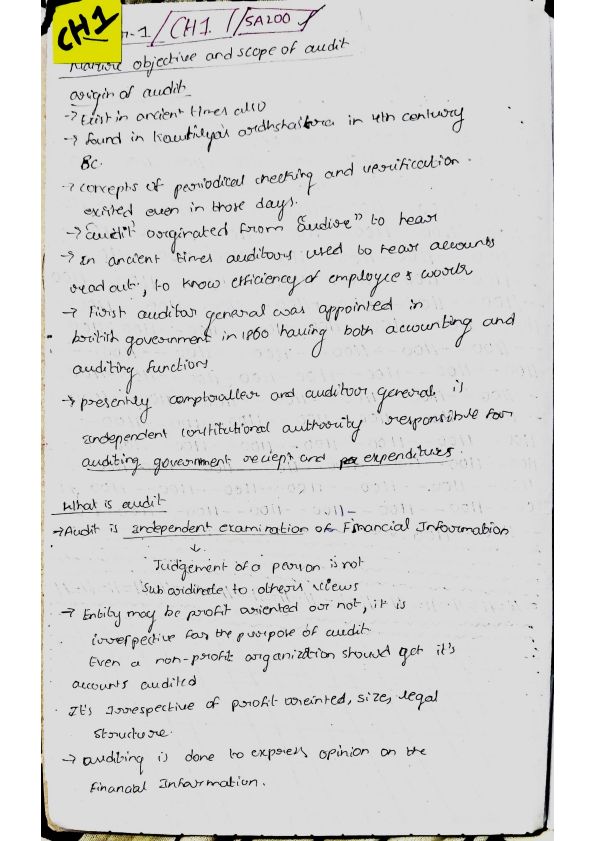 CH1
-1 / CH1 / SA200
Nature objective and scope of audit
origin of audit
-> Exist in ancient times also
-> found in Kautilya's ardhshastra in 4th century
BC.
-> concepts of periodical checking and verification.
existed even in those days.
-> "audit" orginated from "audire" to hear
-> In ancient times auditors used to hear accounts
read out, to know efficiency of employee's work
-> First auditor general was appointed in
british government in 1860 having both accounting and
auditing functions
-> presently comptroller and auditor general is
independent constitutional authority responsible for
auditing government reciept and expenditures
What is audit
-> Audit is independent examination of Financial Information
↓
Judgement of a person is not
Subordinate to others views
-> Entity may be profit oriented or not, it is
irrespective for the purpose of audit.
Even a non-profit organization should get it's
accounts audited
It's irrespective of profit oreinted, size, legal
structure.
-> auditing is done to express opinion on the
Financial Information.